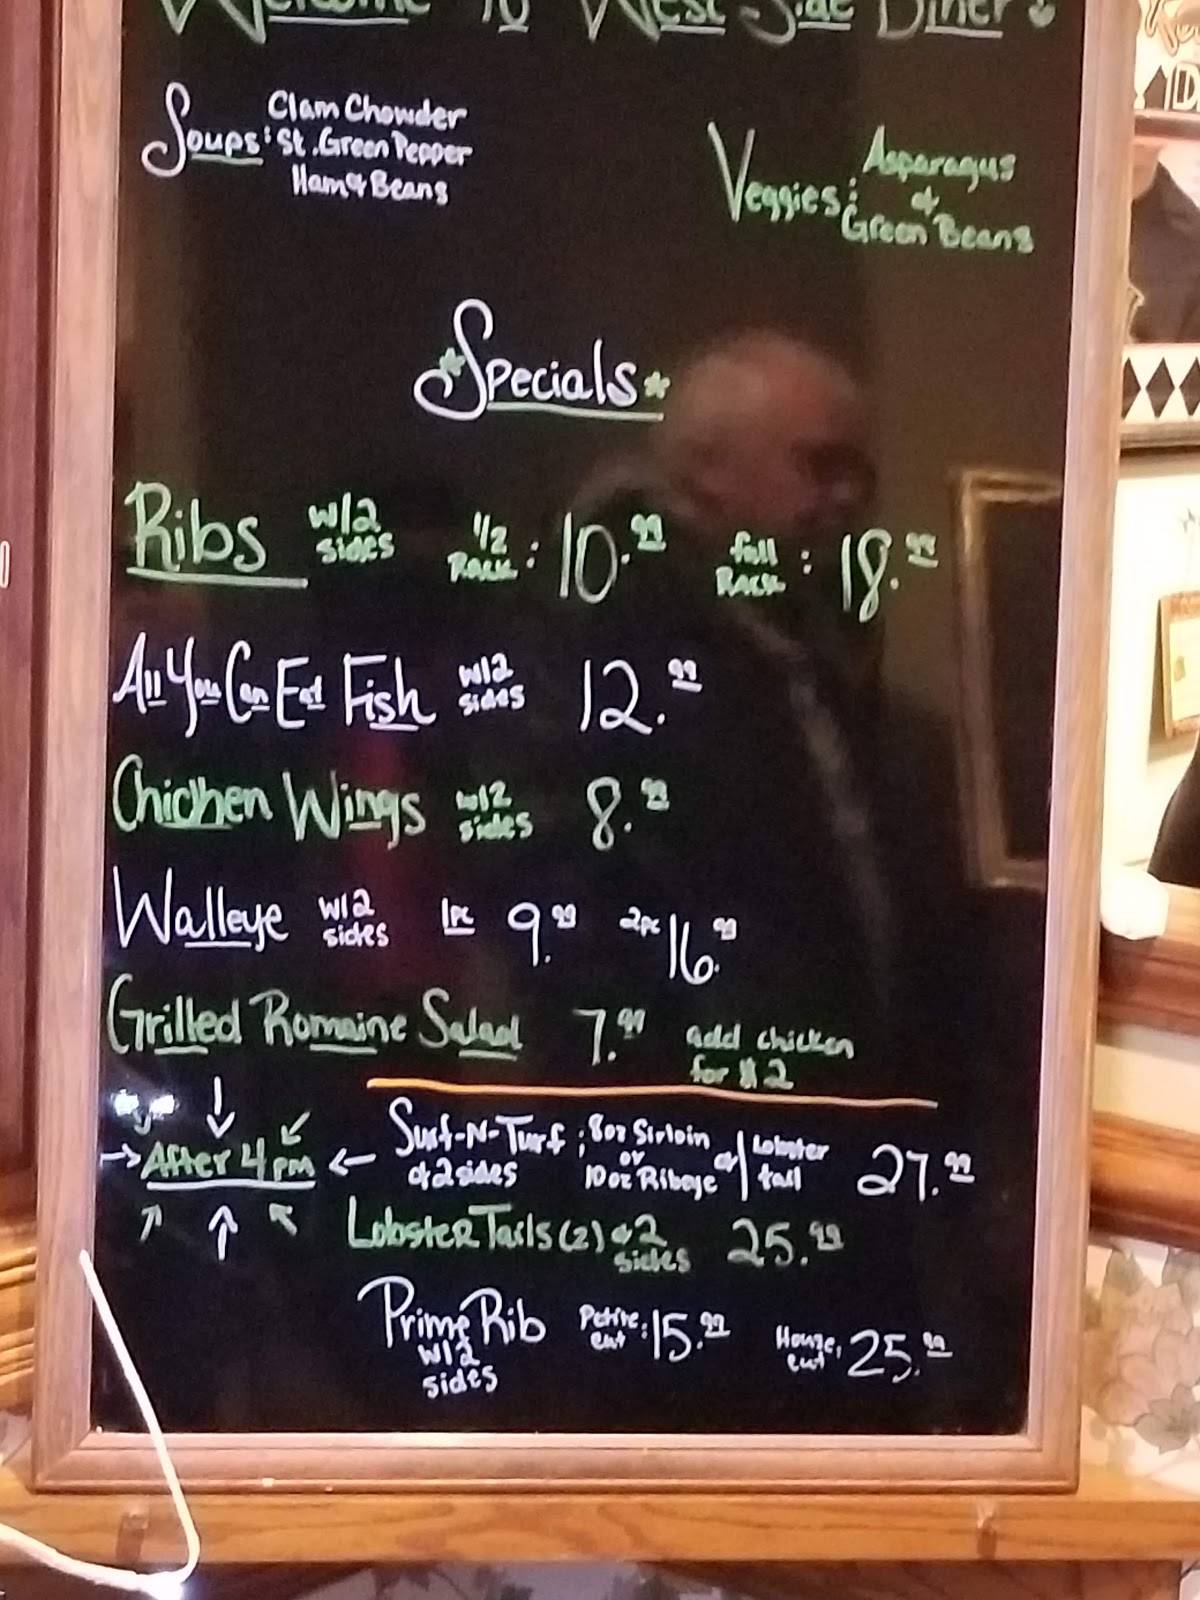 Welcome To West Side Diner
Soups: Clam Chowder
St. Green Pepper
Ham & Beans
Veggies: Asparagus
&
Green Beans
*Specials*
Ribs w/2 sides 1/2 Rack: 10.99 full Rack: 18.99
All You Can Eat Fish w/2 sides 12.99
Chichen Wings w/2 sides 8.99
Walleye w/2 sides 1pc 9.99 2pc 16.99
Grilled Romaine Salad 7.99 add chicken for $2
After 4pm
Surf-N-Turf: 8oz Sirloin or 10oz Ribeye & Lobster tail 27.99
& 2 sides
Lobster Tails (2) & 2 sides 25.99
Prime Rib Petite cut: 15.99 House cut 25.99
w/2 sides